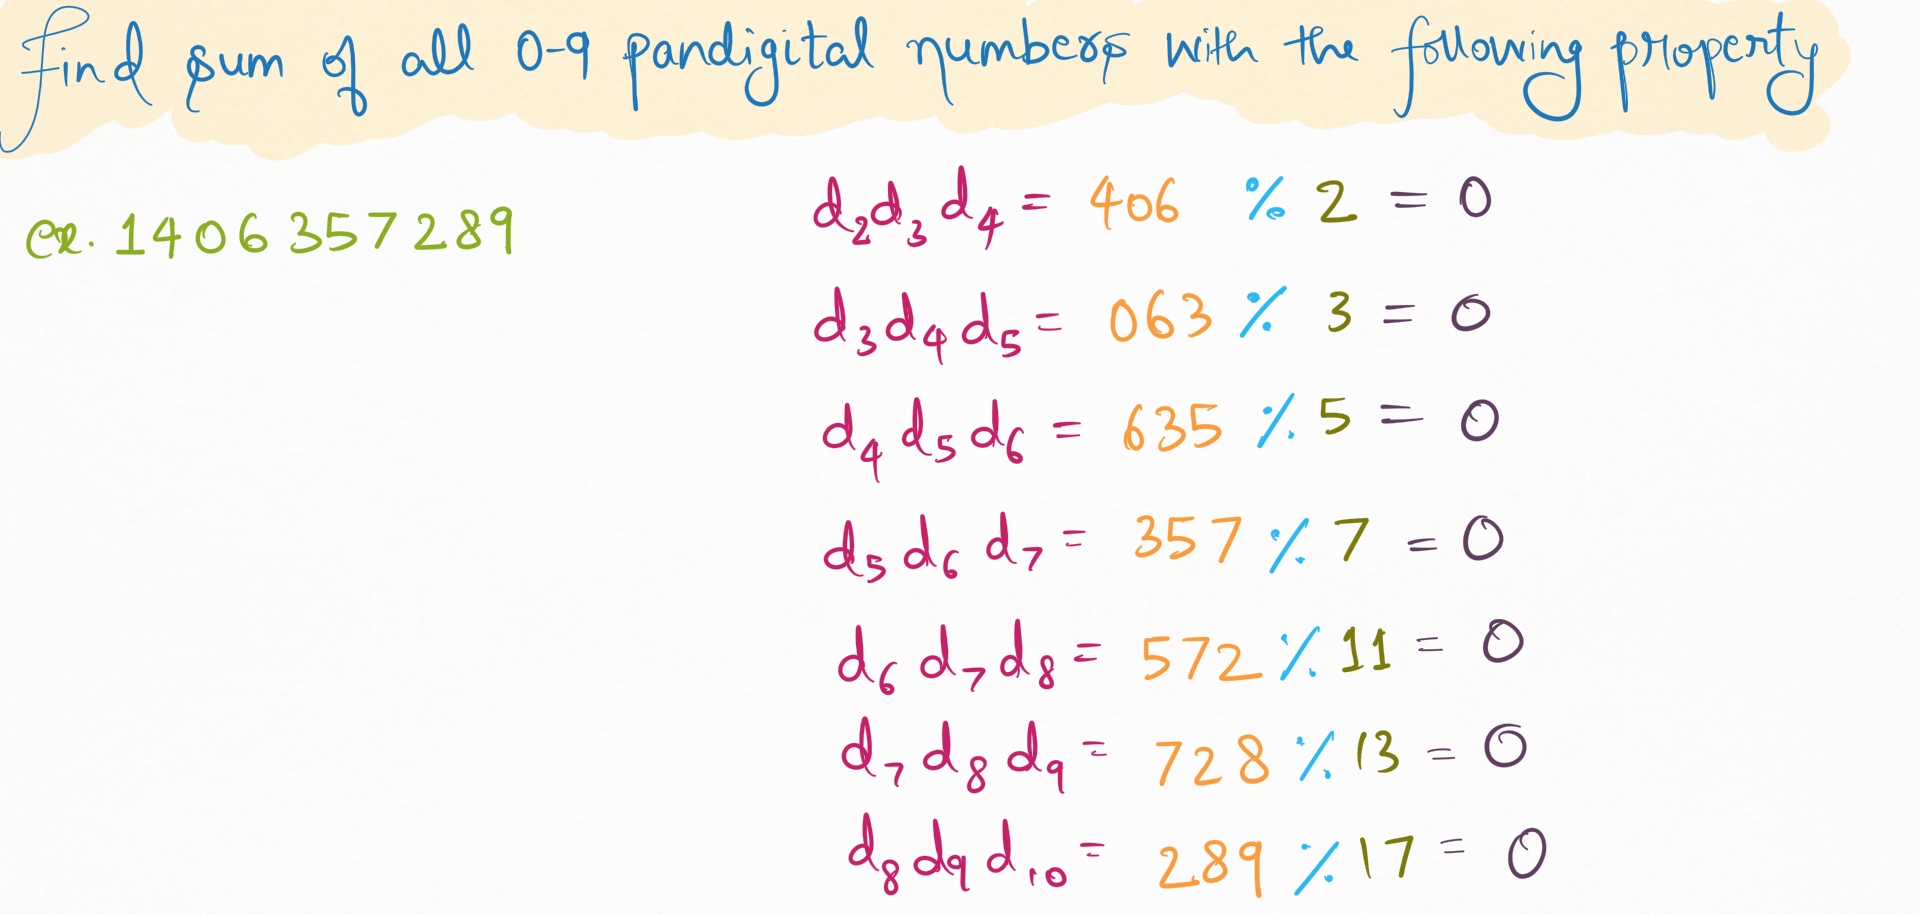 Find sum of all 0-9 pandigital numbers with the following property
ex. 1406357289
d2d3d4 = 406 % 2 = 0
d3d4d5 = 063 % 3 = 0
d4d5d6 = 635 % 5 = 0
d5d6d7 = 357 % 7 = 0
d6d7d8 = 572 % 11 = 0
d7d8d9 = 728 % 13 = 0
d8d9d10 = 289 % 17 = 0